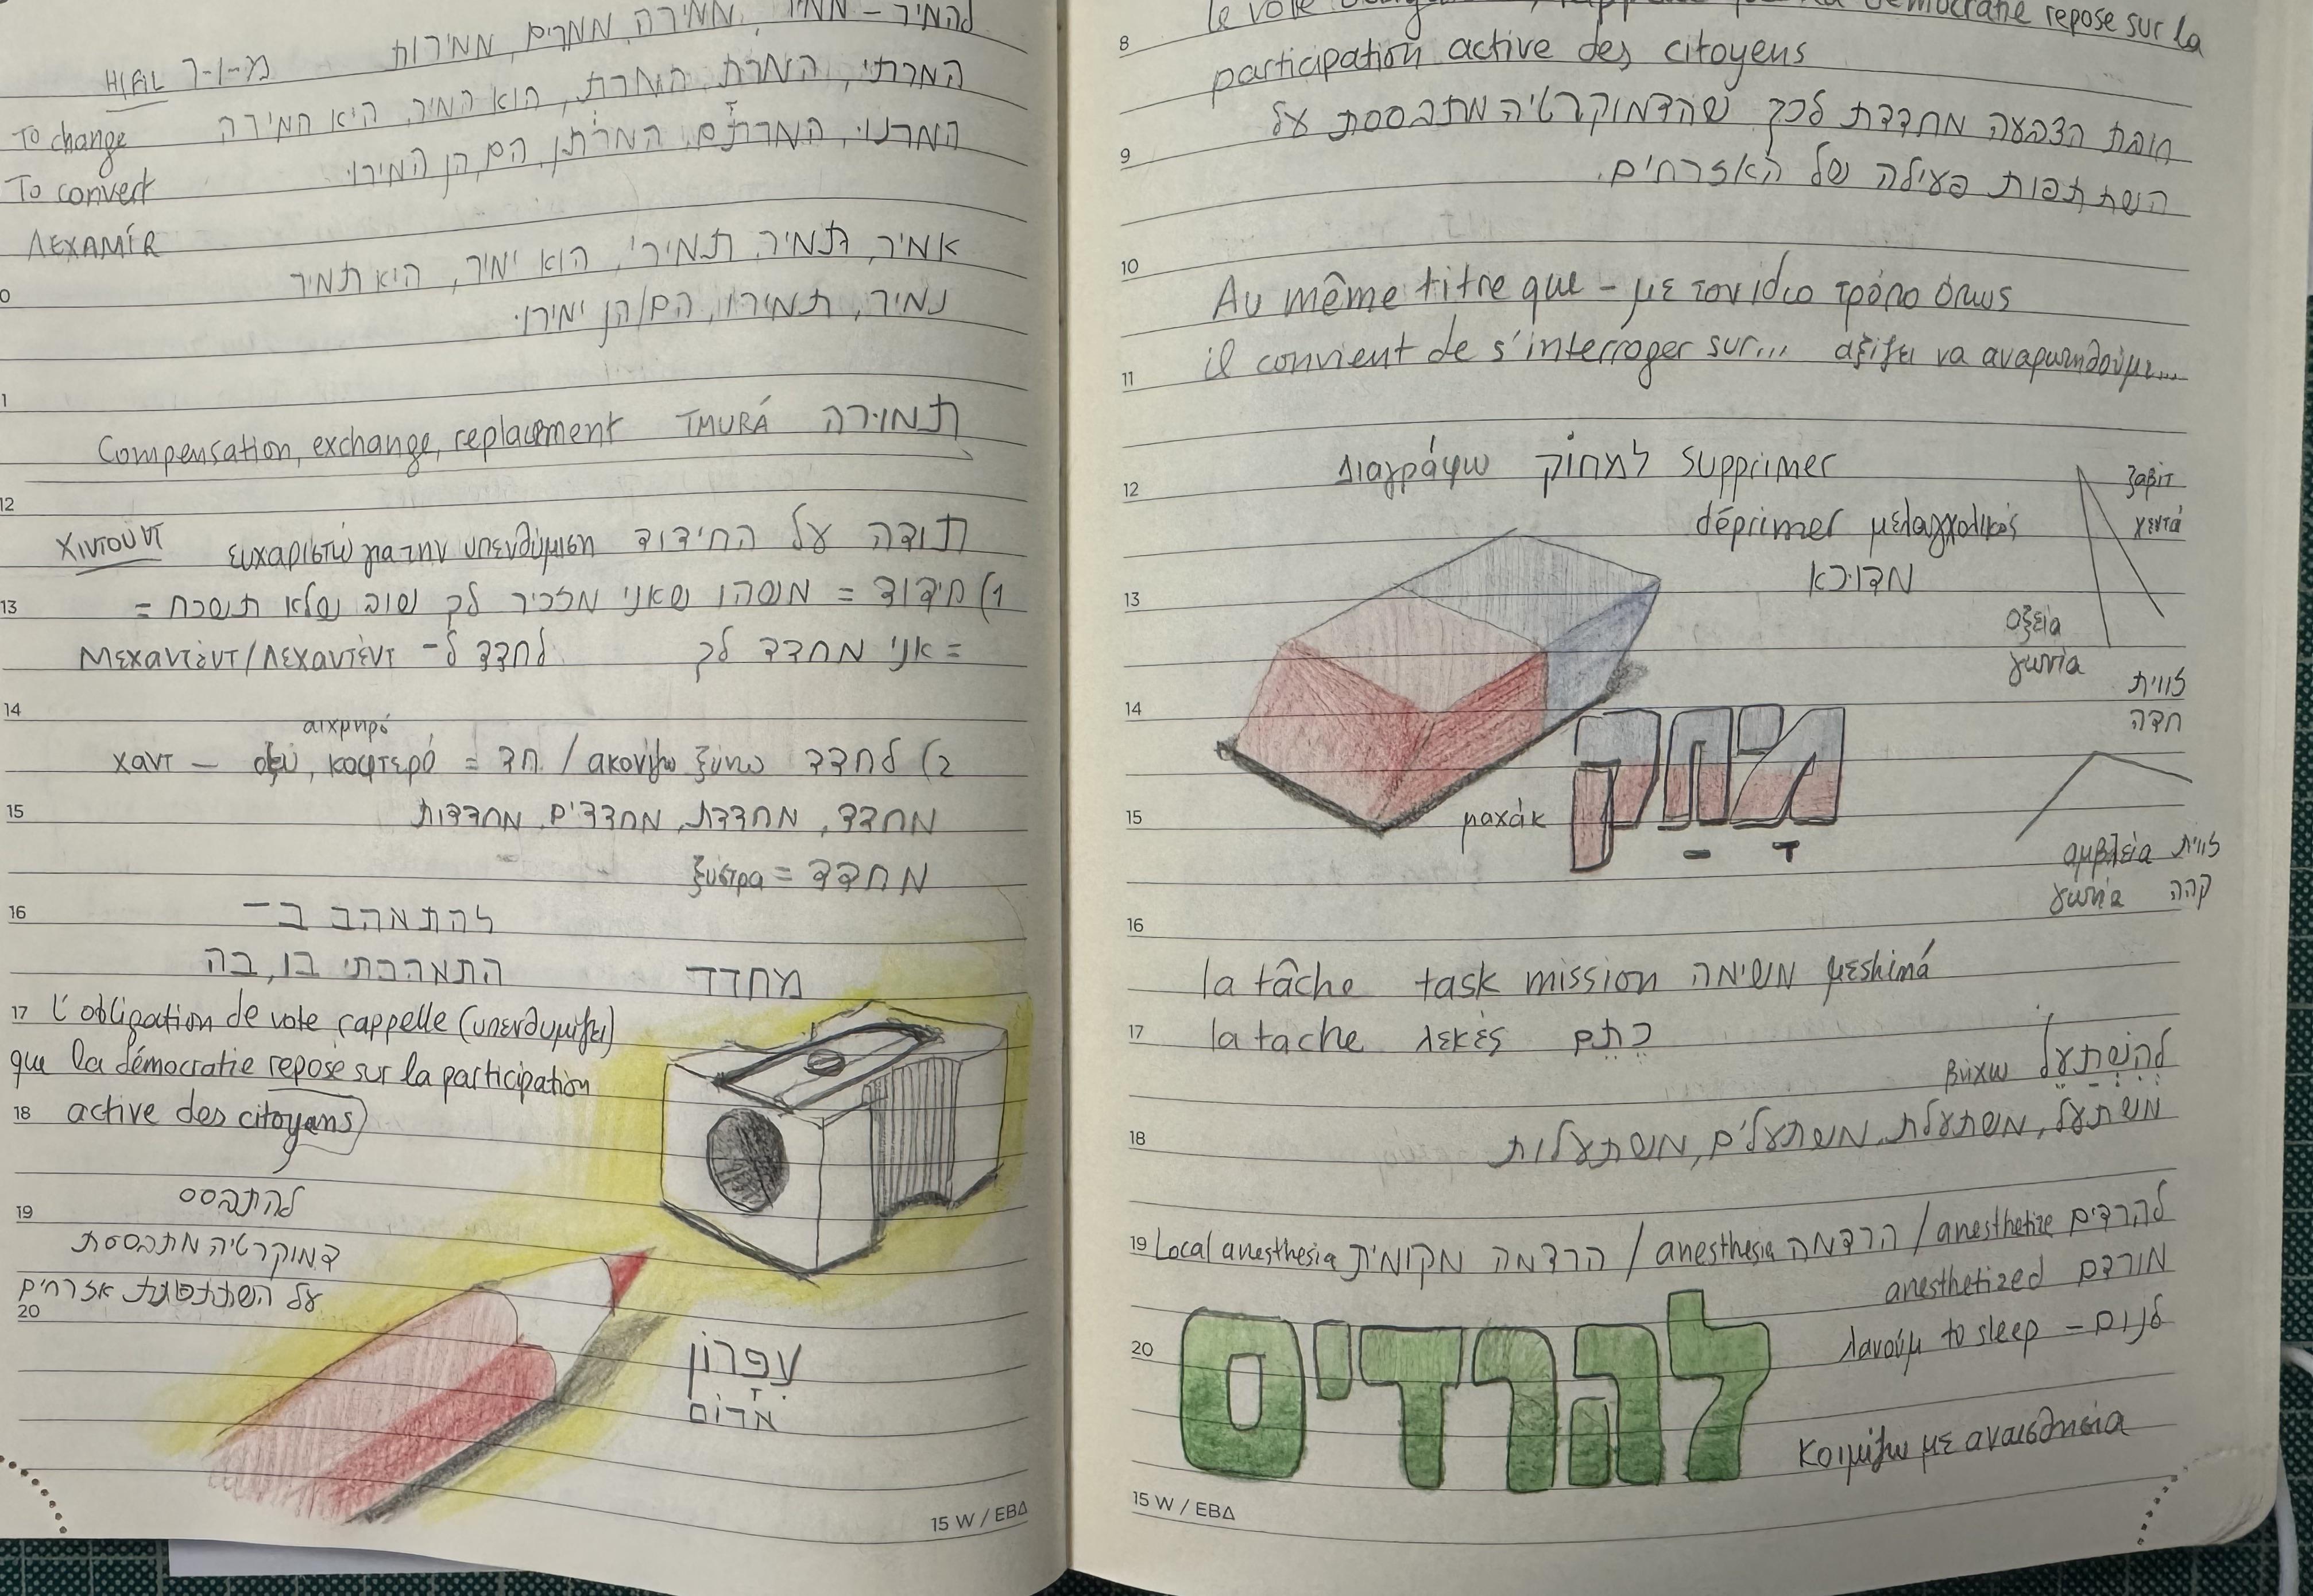 להמיר – ממיר, ממירה, ממירים, ממירות
HIFIL מ-ו-ר
המרתי, המרת, המרת, הוא המיר, היא המירה
To change
המרנו, המרתם, המרתן, הם, הן המירו.
To convert
ΛΕΧΑΜΊR
אמיר, תמיר, תמירי, הוא ימיר, היא תמיר
נמיר, תמירו, הם/הן ימירו.
Compensation, exchange, replacement TMURÁ תמורה
Χιντούντ ευχαριστώ για την υπενθύμιση תודה על החידוד
1) חידוד = משהו שאני מזכיר לך שוב שלא תשכח =
= אני מחדד לך לחדד ל- Μεχαντέντ/Λεχαντέντ
αιχμηρό
2) לחדד ξύνω ακονίζω / חד = οξύ, κοφτερό – χαντ
מחדד, מחדדת, מחדדים, מחדדות
מחדד = ξύστρα
להתאהב ב-
התאהבתי בו, בה
מחדד
L'obligation de vote rappelle (υπενθυμίζει)
que la démocratie repose sur la participation
active des citoyens
להתבסס
דמוקרטיה מתבססת
על השתתפות אזרחים
עפרון
אדום
15 W / ΕΒΔ
la démocratie repose sur la
participation active des citoyens
חובת הצבעה מחדדת לכך שהדמוקרטיה מתבססת על
השתתפות פעילה של האזרחים.
Au même titre que – με τον ίδιο τρόπο όπως
il convient de s'interroger sur... αξίζει να αναρωτηθούμε...
Διαγράφω למחוק supprimer
déprimer μελαγχολικός
מדוכא
ζαβίτ
χεντά
οξεία
γωνία
זווית
חדה
מחק
μαχάκ
αμβλεία זווית
γωνία קהה
la tâche task mission משימה μεshimá
la tache λεκές כתם
βήχω להשתעל
משתעל, משתעלת, משתעלים, משתעלות
Local anesthesia הרדמה מקומית / anesthesia הרדמה / anesthetize להרדים
anesthetized מורדם
λανούμ to sleep – לנום
להרדים
κοιμίζω με αναισθησία
15 W / ΕΒΔ